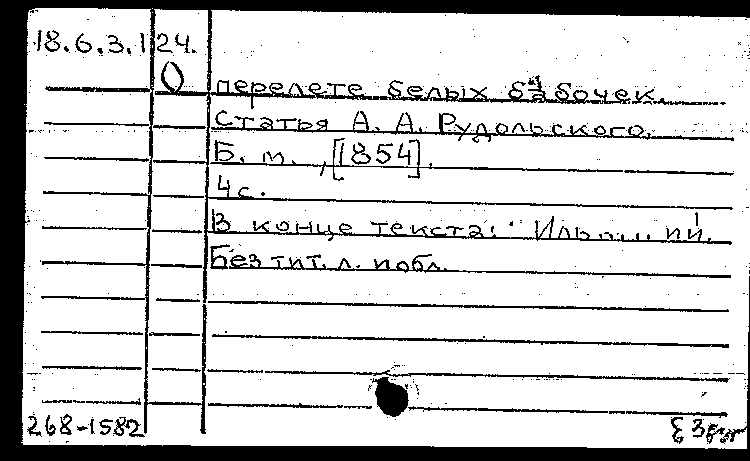 18.6.3.124.
О перелете белых бабочек.
Статья А. А. Рудольского.
Б. м., [1854].
4 с.
В конце текста:
Без тит. л. и обл.
268-1582